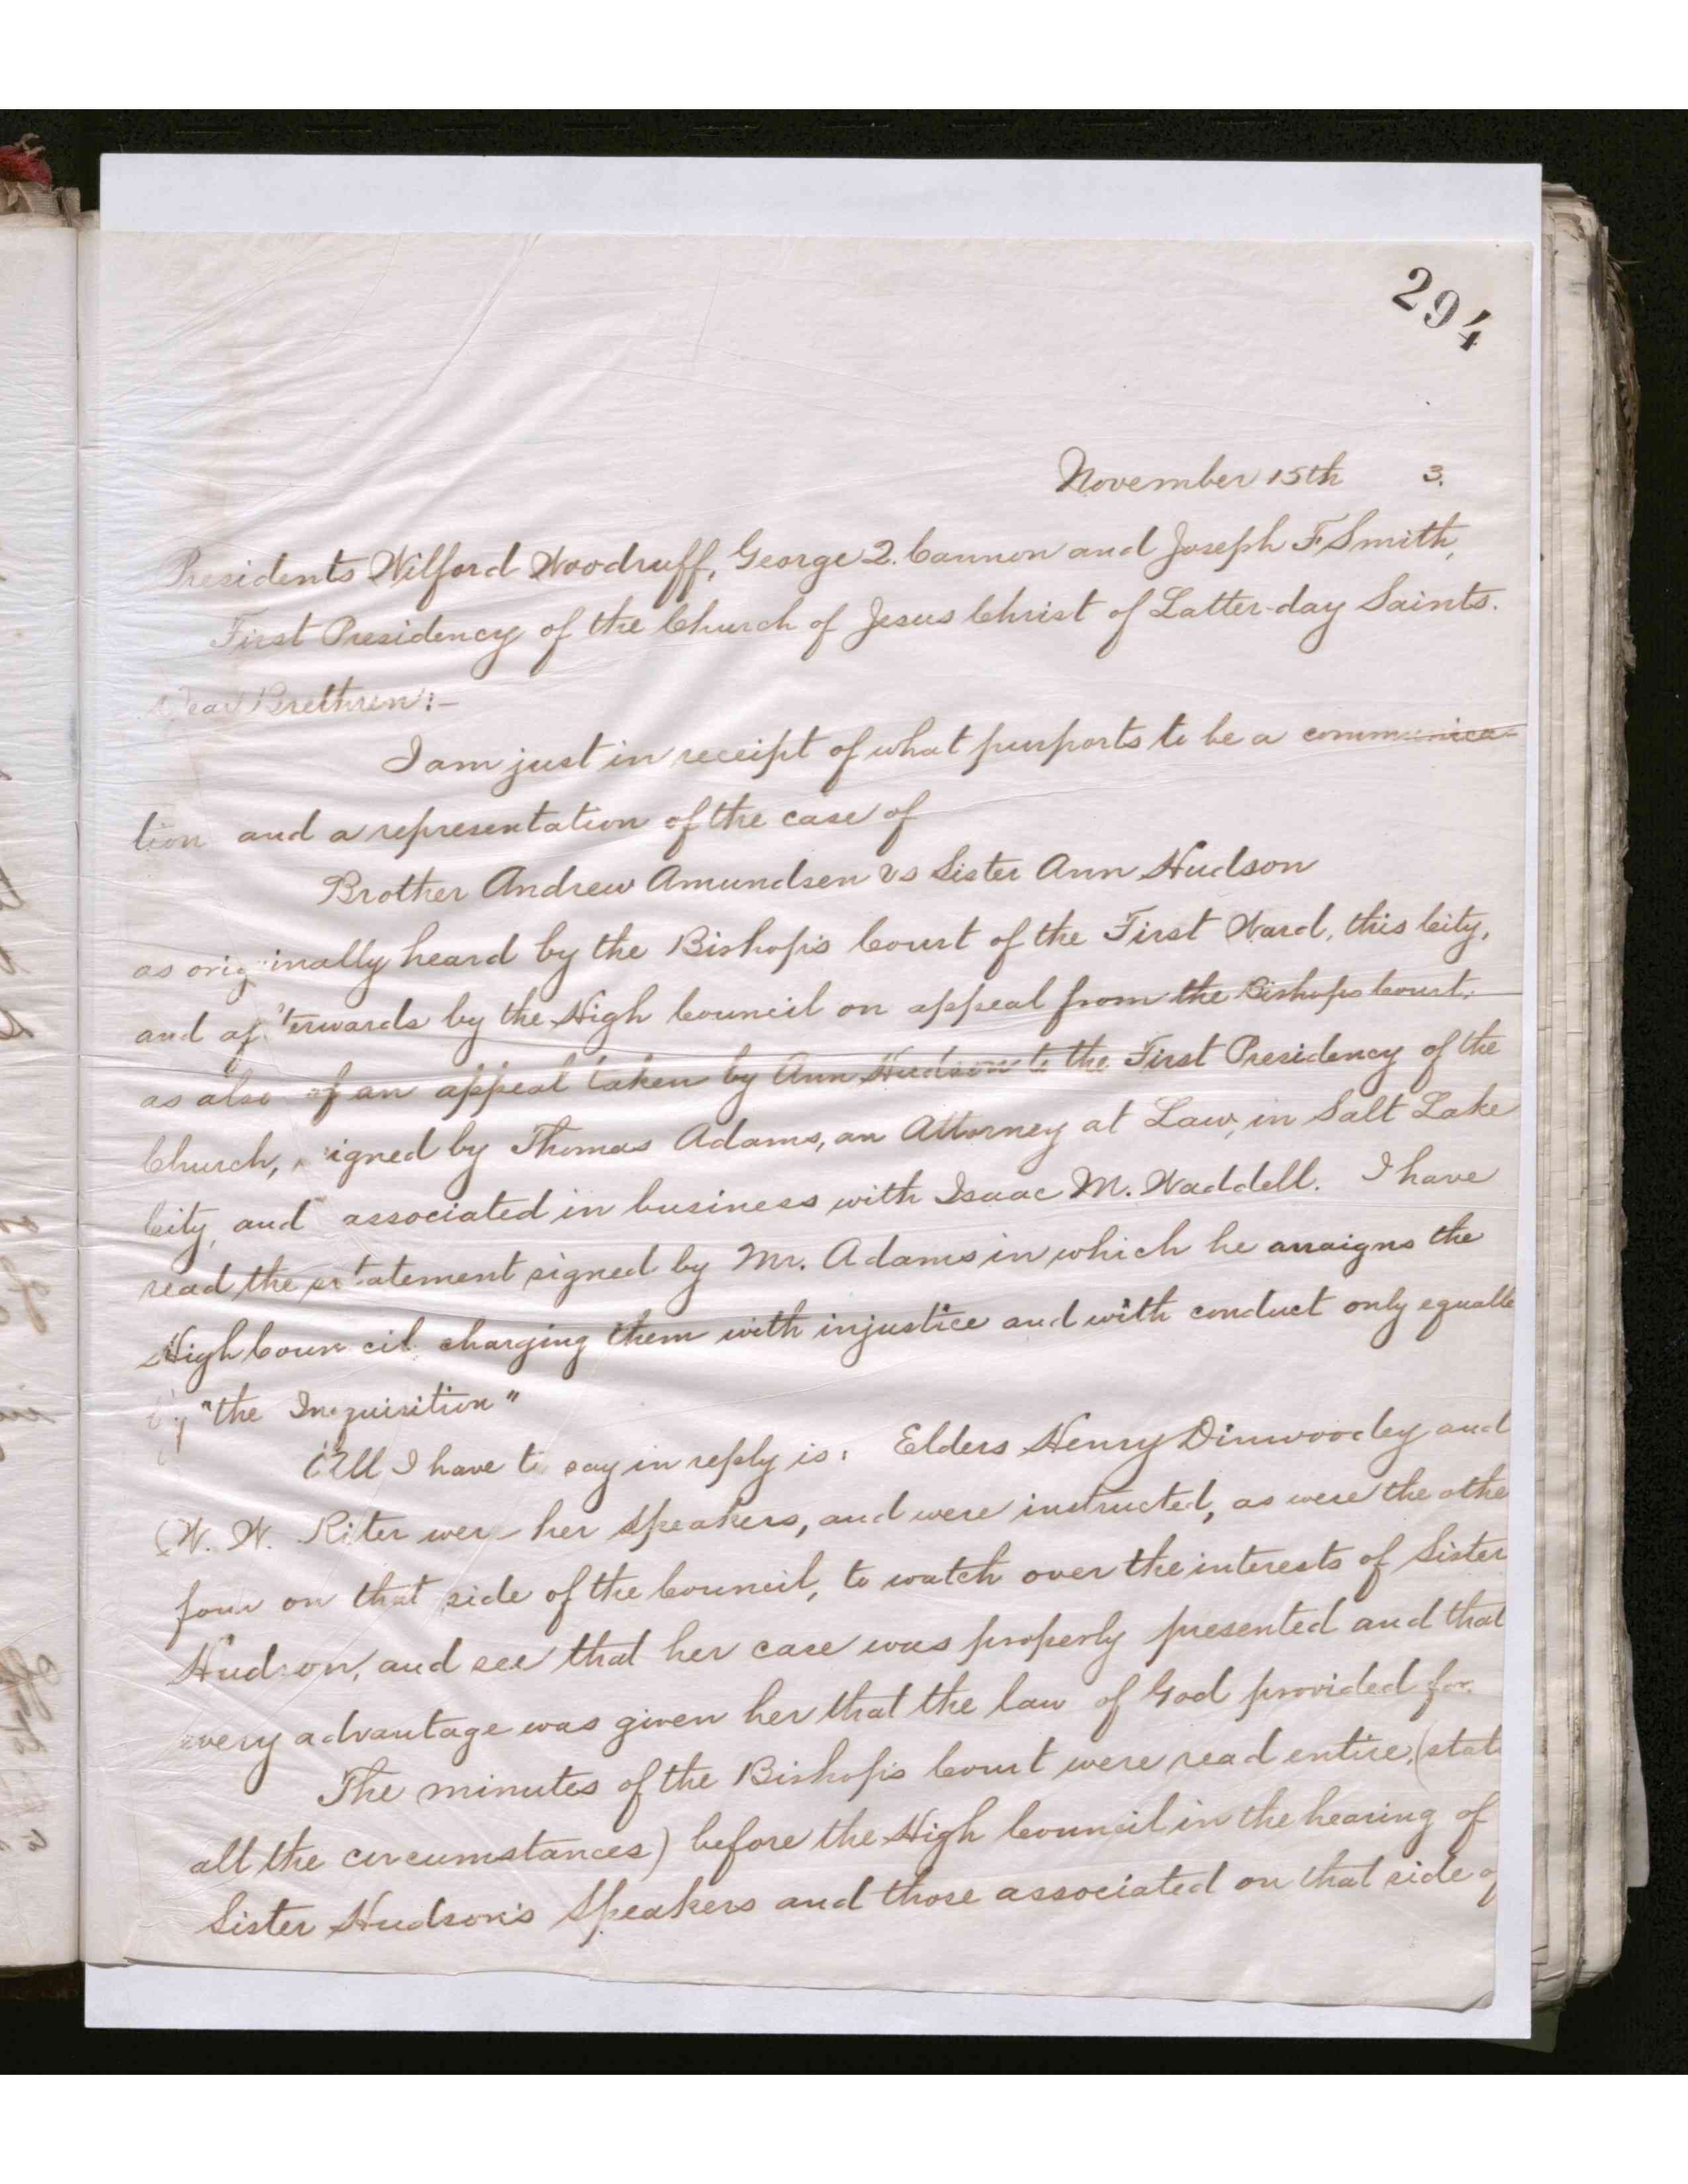 294
November 15th 3.
Presidents Wilford Woodruff, George Q. Cannon and Joseph F. Smith,
First Presidency of the Church of Jesus Christ of Latter-day Saints.
Dear Brethren:-
I am just in receipt of what purports to be a communica-
tion and a representation of the case of
Brother Andrew Amundsen vs Sister Ann Hudson
as originally heard by the Bishop's Court of the First Ward, this City,
and afterwards by the High Council on appeal from the Bishops Court,
as also of an appeal taken by Ann Hudson to the First Presidency of the
Church, signed by Thomas Adams, an Attorney at Law, in Salt Lake
City, and associated in business with Isaac M. Waddell. I have
read the statement signed by Mr. Adams in which he arraigns the
High Council charging them with injustice and with conduct only equalle
by "the Inquisition"
All I have to say in reply is: Elders Henry Dinwoodey and
W. W. Riter were her Speakers, and were instructed, as were the othe
four on that side of the Council, to watch over the interests of Sister
Hudson, and see that her case was properly presented and that
every advantage was given her that the law of God provided for.
The minutes of the Bishop's Court were read entire, (stat
all the circumstances) before the High Council in the hearing of
Sister Hudson's Speakers and those associated on that side of